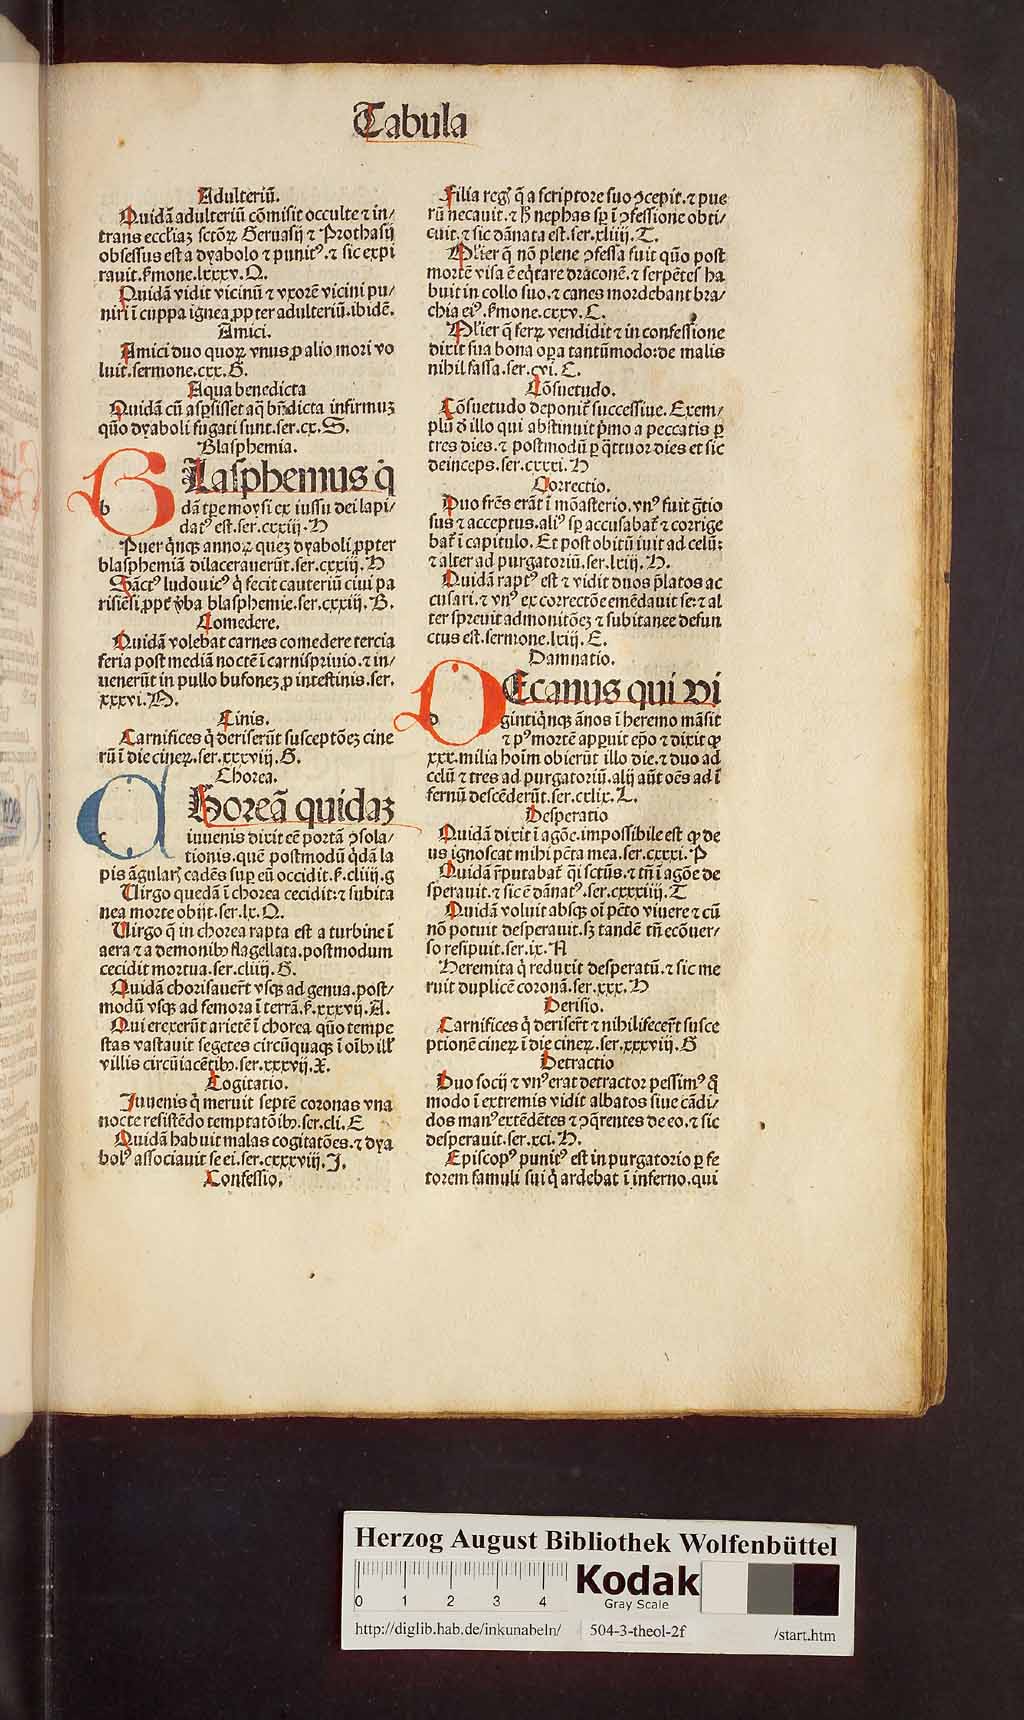 Tabula
Adulteriū.
Quidā adulteriū cōmisit occulte ⁊ in/
trans eccl'iaz sctōꝝ Geruasij ⁊ Prothasij
obsessus est a dyabolo ⁊ punitꝰ.⁊ sic expi
rauit.s̄mone.lxxxv.Q.
Quidā vidit vicinū ⁊ vxorē vicini pu/
niri ī cuppa ignea ꝓpter adulteriū.ibidē.
Amici.
Amici duo quoꝝ vnus ꝓ alio mori vo
luit.sermone.cxx.G.
Aqua benedicta
Quidā cū asꝑsisset aq̄ bn̄dicta infirmuz
qūo dyaboli fugati sunt.ser.cx.S.
Blasphemia.
BLasphemus q̇
b dā tꝑe moysi ex iussu dei lapi/
datꝰ est.ser.cxxiij.H
Puer q̇nqꝫ annoꝝ quez dyaboli ꝓpter
blasphemiā dilacerauerūt.ser.cxxiij.H
Sāctꝰ ludouicꝰ q̇ fecit cauteriū ciui pa
risiēsi ꝓpt̄ v̄ba blasphemie.ser.cxxiij.B.
Comedere.
Quidā volebat carnes comedere tercia
feria post mediā noctē ī carnispriuio.⁊ in/
uenerūt in pullo bufonez ꝓ intestinis.ser.
xxxvi.N.
Cinis.
Carnifices q̇ deriserūt susceptōez cine
rū ī die cineꝝ.ser.xxxviij.G.
Chorea.
CHoreā quidaz
c iuuenis dixit eē portā ꝯsola/
tionis.quē postmodū q̇dā la
pis āgularꝭ cadēs suꝑ eū occidit.s̄.cliiij.g
Uirgo quedā ī chorea cecidit:⁊ subita
nea morte obijt.ser.lx.Q.
Uirgo q̄ in chorea rapta est a turbine ī
aera ⁊ a demonibꝫ flagellata.postmodum
cecidit mortua.ser.cliiij.G.
Quidā chorisauer̄t vsqꝫ ad genua.post/
modū vsqꝫ ad femora ī terrā.s̄.xxxvij.A.
Qui erexerūt arietē ī chorea qūo tempe
stas vastauit segetes circūquaqꝫ ī oībꝫ ill'
villis circūiacētibꝫ.ser.xxxvij.X.
Cogitatio.
Iuuenis q̇ meruit septē coronas vna
nocte resistēdo temptatōibꝫ.ser.cli.E
Quidā habuit malas cogitatōes.⁊ dya
bolꝰ associauit se ei.ser.cxxxviij.I.
Confessio.
Filia regꝭ q̄ a scriptore suo ꝯcepit.⁊ pue
rū necauit.⁊ h̄ nephas sꝑ ī ꝯfessione obti/
cuit.⁊ sic dānata est.ser.xliiij.T.
Mlier q̄ nō plene ꝯfessa fuit qūo post
mortē visa ē eq̇tare draconē.⁊ serpētes ha
buit in collo suo.⁊ canes mordebant bra/
chia eiꝰ.s̄mone.cxxv.C.
Mlier q̄ ferꝝ vendidit ⁊ in confessione
dixit sua bona oꝑa tantūmodo:de malis
nihil fassa.ser.cvi.C.
Cōsuetudo.
Cōsuetudo deponit̄ successiue.Exem/
plū d̄ illo qui abstinuit p̄mo a peccatis ꝑ
tres dies.⁊ postmodū ꝑ q̄ttuor dies et sic
deinceps.ser.cxxxi.H
Correctio.
Duo fr̄es erāt ī mōasterio.vnꝰ fuit g̃tio
sus ⁊ acceptus.aliꝰ sꝑ accusabat̄ ⁊ corrige
bat̄ ī capitulo.Et post obitū iuit ad celū:
⁊ alter ad purgatoriū.ser.lxiij.H.
Quidā raptꝰ est ⁊ vidit duos p̄latos ac
cusari.⁊ vnꝰ ex correctōe emēdauit se:⁊ al
ter spreuit admonitōez ⁊ subitanee defun
ctus est.sermone.lxiij.E.
Damnatio.
DEcanus qui vi
d gintiq̇nqꝫ ānos ī heremo māsit
⁊ pꝰ mortē apꝑuit ep̄o ⁊ dixit ꝙ
xxx.milia hoīm obierūt illo die.⁊ duo ad
celū ⁊ tres ad purgatoriū.alij aūt oēs ad ī
fernū descēderūt.ser.cxlix.L.
Desperatio
Quidā dixit ī agōe.impossibile est ꝙ de
us ignoscat mihi pctā mea.ser.cxxxi.P
Quidā r̄putabat̄ q̇i sctūs.⁊ tn̄ ī agōe de
sperauit.⁊ sic ē dānatꝰ.ser.cxxxiiij.T
Quidā voluit absqꝫ oī pctō viuere ⁊ cū
nō potuit desperauit.sꝫ tandē tn̄ ecōuer/
so resipuit.ser.ix.A
Heremita q̇ reduxit desperatū.⁊ sic me
ruit duplicē coronā.ser.xxx.H
Derisio.
Carnifices q̇ deriser̄t ⁊ nihilifecer̄t susce
ptionē cineꝝ ī die cineꝝ.ser.xxxviij.G
Detractio
Duo socij ⁊ vnꝰ erat detractor pessimꝰ q̄
modo ī extremis vidit albatos siue cādi/
dos manꝰ extēdētes ⁊ ꝯq̄rentes de eo.⁊ sic
desperauit.ser.xci.H.
Episcopꝰ punitꝰ est in purgatorio ꝑ fe
torem famuli sui q̇ ardebat ī inferno.qui
Herzog August Bibliothek Wolfenbüttel
0 1 2 3 4
Kodak
Gray Scale
http://diglib.hab.de/inkunabeln/ 504-3-theol-2f /start.htm